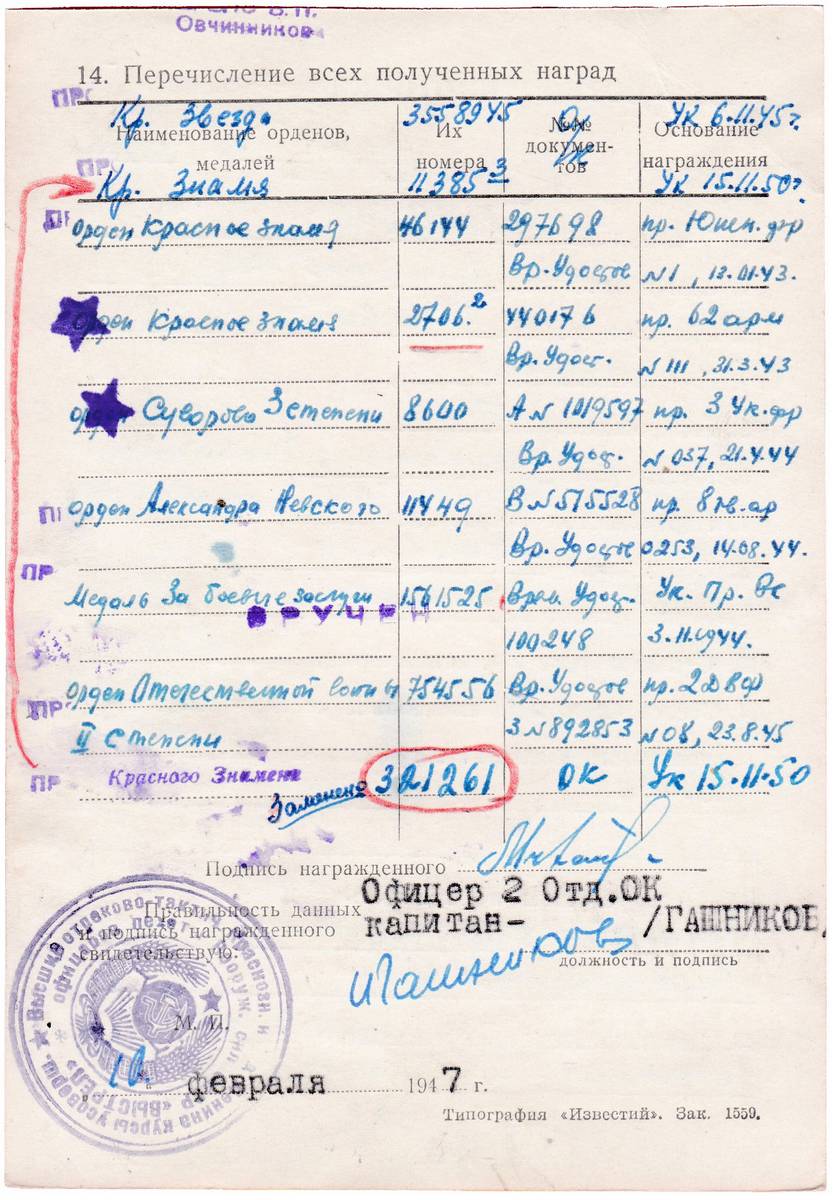 Овчинников
14. Перечисление всех полученных наград
Кр. Звезда 3558945 Ок Ук 6.11.45г.
Наименование орденов, медалей Их номера №№ документов Основание награждения
Кр. Знамя 11385 3 Ок Ук 15.11.50г.
орден Красное знамя 46144 297698 пр. Южн. фр
Вр. Удостов N1, 13.01.43.
орден Красное знамя 2706.2 440176 пр. 62 арм
Вр. Удост. N 111, 31.3.43
орден Суворова 3 степени 8600 А N 1019597 пр. 3 Ук. фр
Вр. Удост. N 037, 21.4.44
орден Александра Невского 11449 В N 515528 пр. 8 гв. ар
Вр. Удостов 0253, 14.08.44.
Медаль За боевые заслуги 1561525 Врем. Удост. Ук. Пр. Вс
ВРУЧЕН
100248 3.11.1944.
орден Отечественной войны 754556 Вр. Удостов пр. 2ДВФ
II степени З N 892853 N 08, 23.8.45
ПР Красного Знамени 321261 ОК Ук 15.11.50
Заменена
Подпись награжденного
Офицер 2 Отд.ОК
Правильность данных
и подпись награжденного капитан- /ГАШНИКОВ/
свидетельствую:
Гашников
должность и подпись
М. П.
10 февраля 1947 г.
"ВЫСТРЕЛ"
Типография «Известий». Зак. 1559.